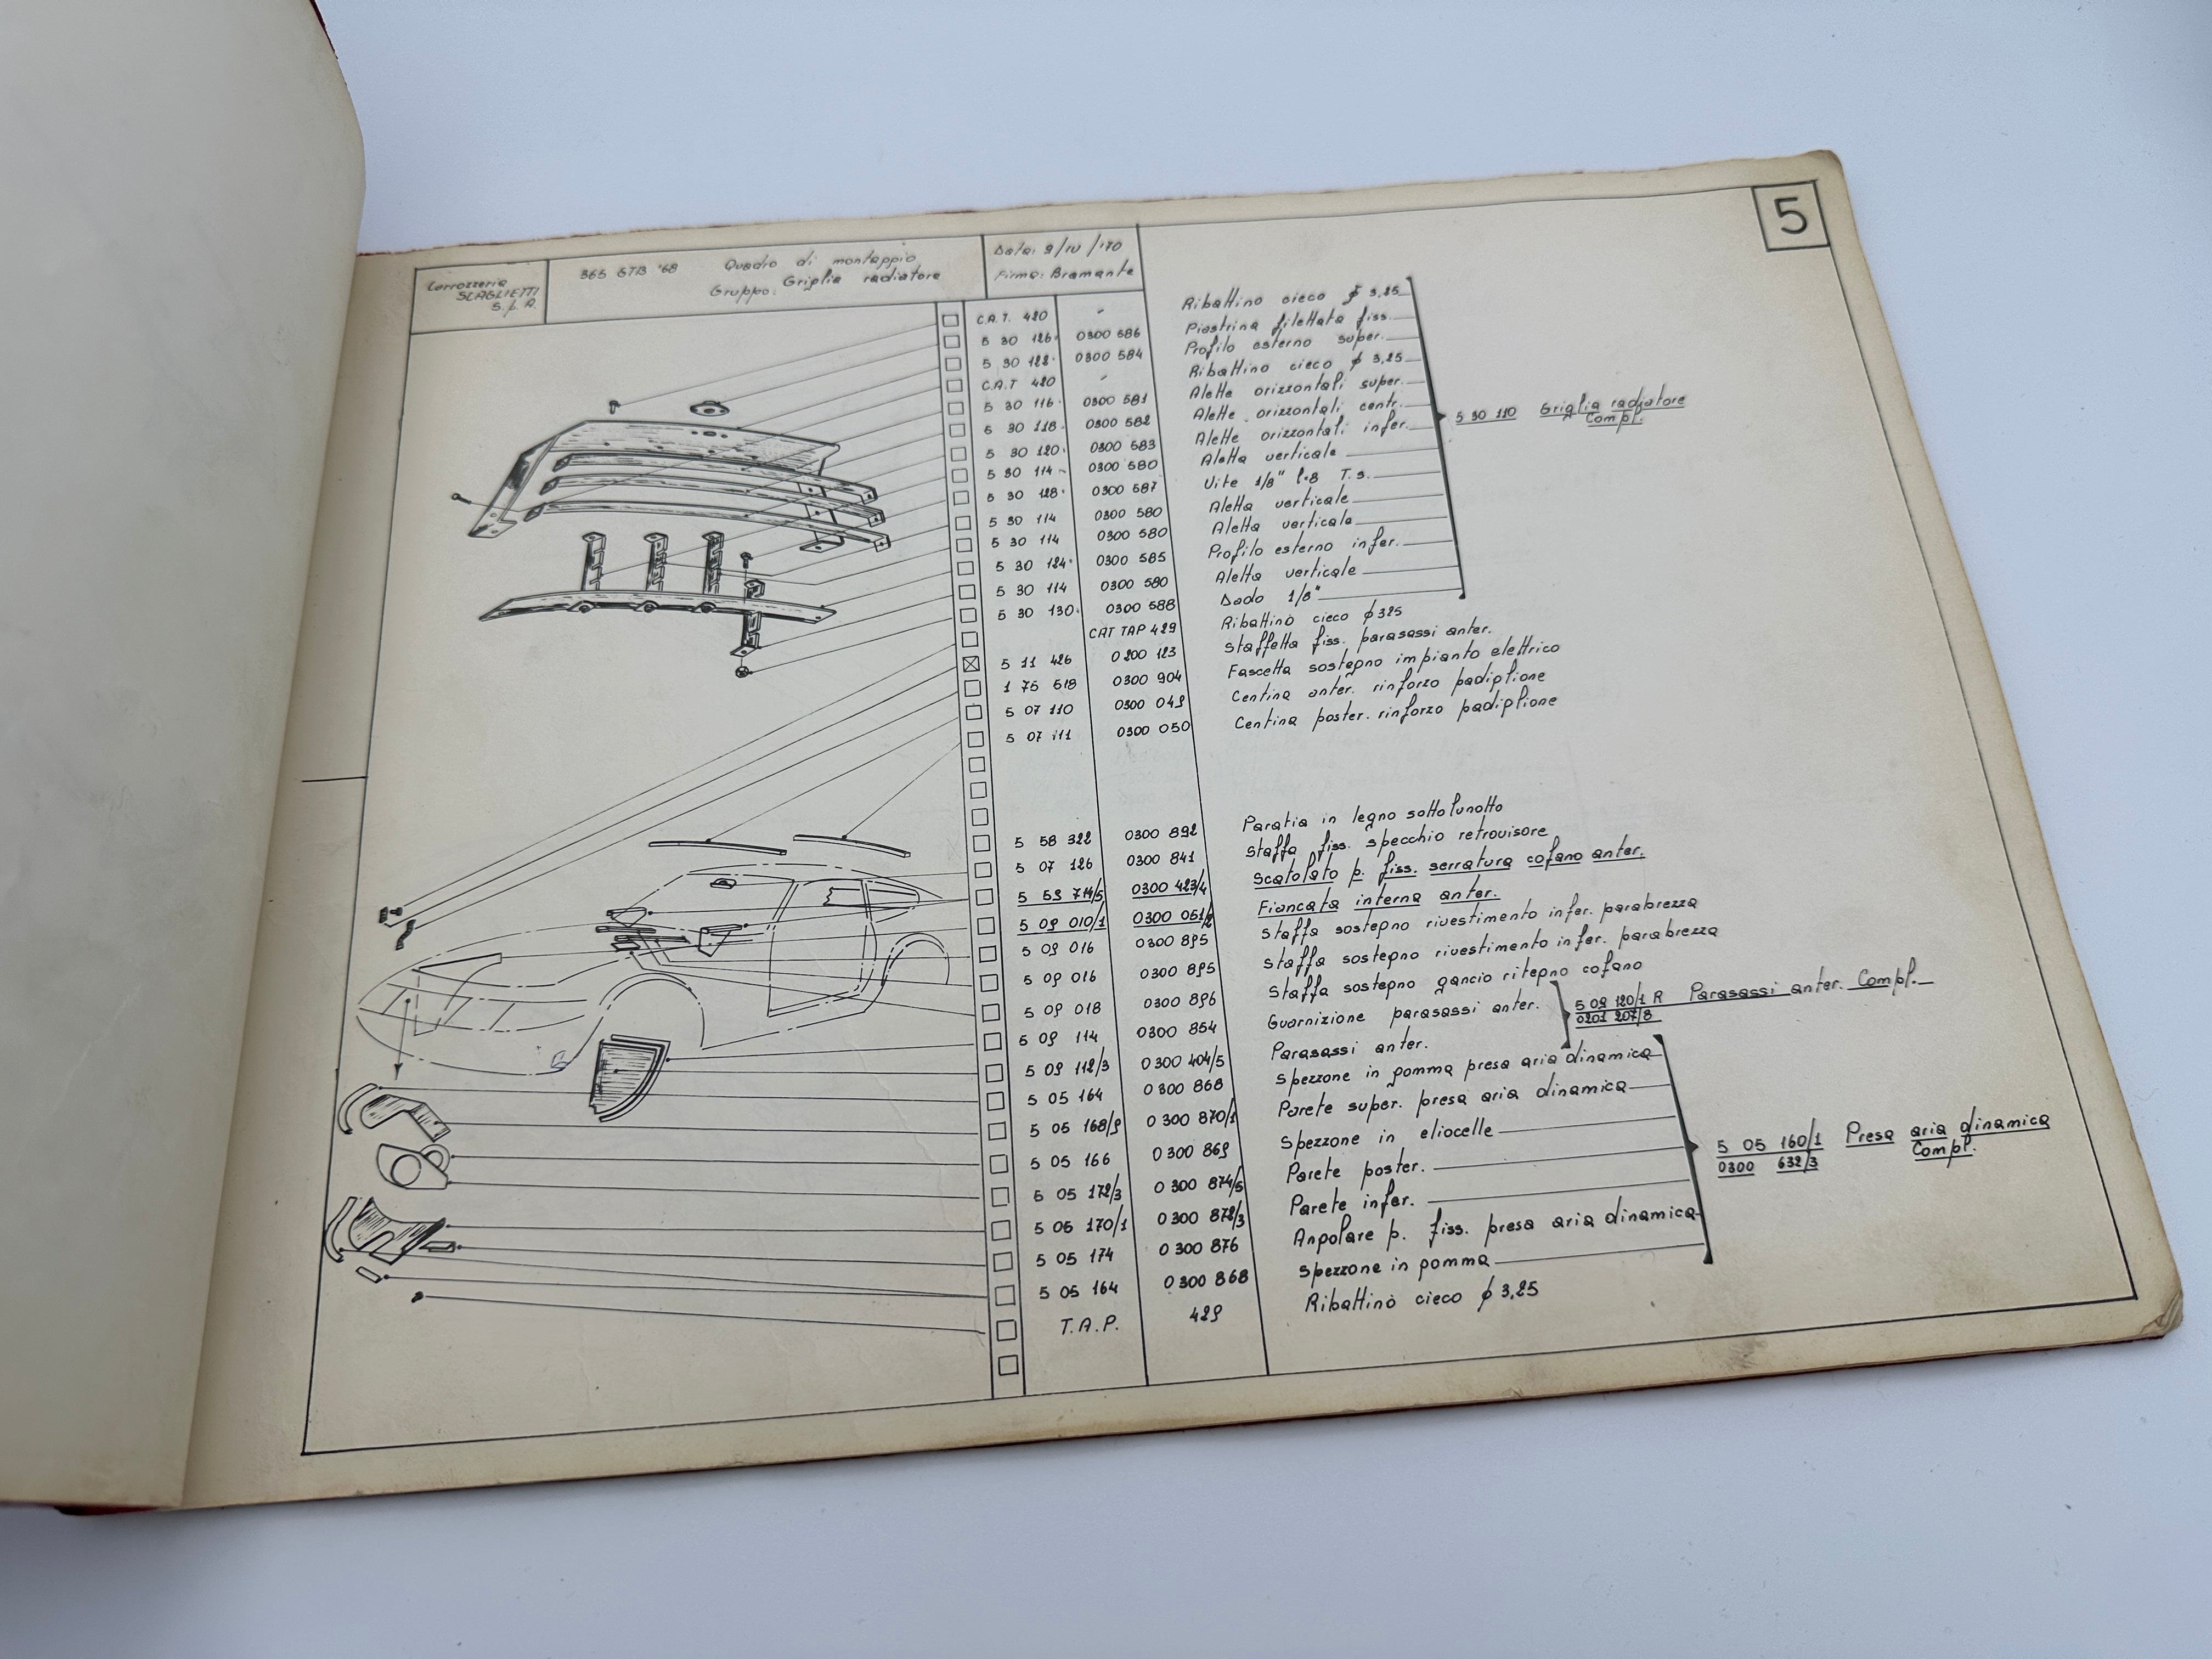 5
Carrozzeria
SCAGLIETTI
S.p.A.
365 GTB '68 Quadro di montaggio
Gruppo: Griglia radiatore
Data: 9/IV/'70
Firma: Bramante
C.A.T. 420 " Ribattino cieco ϕ 3,25
5 30 126 0300 586 Piastrina filettata fiss.
5 30 122 0300 584 Profilo esterno super.
C.A.T 420 " Ribattino cieco ϕ 3,25
5 30 116 0300 581 Alette orizzontali super.
5 30 118 0300 582 Alette orizzontali centr.
5 30 120 0300 583 Alette orizzontali infer.
5 30 114 0300 580 Aletta verticale
5 30 128 0300 587 Vite 1/8" l.8 T.s.
5 30 114 0300 580 Aletta verticale
5 30 114 0300 580 Aletta verticale
5 30 124 0300 585 Profilo esterno infer.
5 30 114 0300 580 Aletta verticale
5 30 130 0300 588 Dado 1/8"
5 30 110 Griglia radiatore
Compl.
CAT TAP 429 Ribattino cieco ϕ 325
5 11 426 0200 123 Staffetta fiss. parasassi anter.
1 75 618 0300 904 Fascetta sostegno impianto elettrico
5 07 110 0300 049 Centina anter. rinforzo padiglione
5 07 111 0300 050 Centina poster. rinforzo padiglione
5 58 322 0300 892 Paratia in legno sottolunotto
5 07 126 0300 841 Staffa fiss. specchio retrovisore
5 59 714/5 0300 423/4 Scatolato p. fiss. serratura cofano anter.
5 09 010/1 0300 051/2 Fiancata interna anter.
5 09 016 0300 895 Staffa sostegno rivestimento infer. parabrezza
5 09 016 0300 895 Staffa sostegno rivestimento infer. parabrezza
5 09 018 0300 896 Staffa sostegno gancio ritegno cofano
5 09 114 0300 854 Guarnizione parasassi anter.
5 09 112/3 0300 404/5 Parasassi anter.
5 09 120/1 R Parasassi anter. Compl.
0201 207/8
5 05 164 0300 868 Spezzone in gomma presa aria dinamica
5 05 168/9 0300 870/1 Parete super. presa aria dinamica
5 05 166 0300 869 Spezzone in eliocelle
5 05 172/3 0300 874/5 Parete poster.
5 05 170/1 0300 872/3 Parete infer.
5 05 174 0300 876 Angolare p. fiss. presa aria dinamica
5 05 164 0300 868 Spezzone in gomma
5 05 160/1 Presa aria dinamica
0300 632/3 Compl.
T.A.P. 429 Ribattino cieco ϕ 3,25